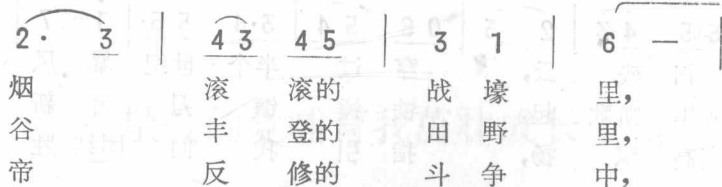 2· 3 | 4 3 4 5 | 3 1 | 6 — |
烟 滚 滚的 战 壕 里，
谷 丰 登的 田 野 里，
帝 反 修的 斗 争 中，